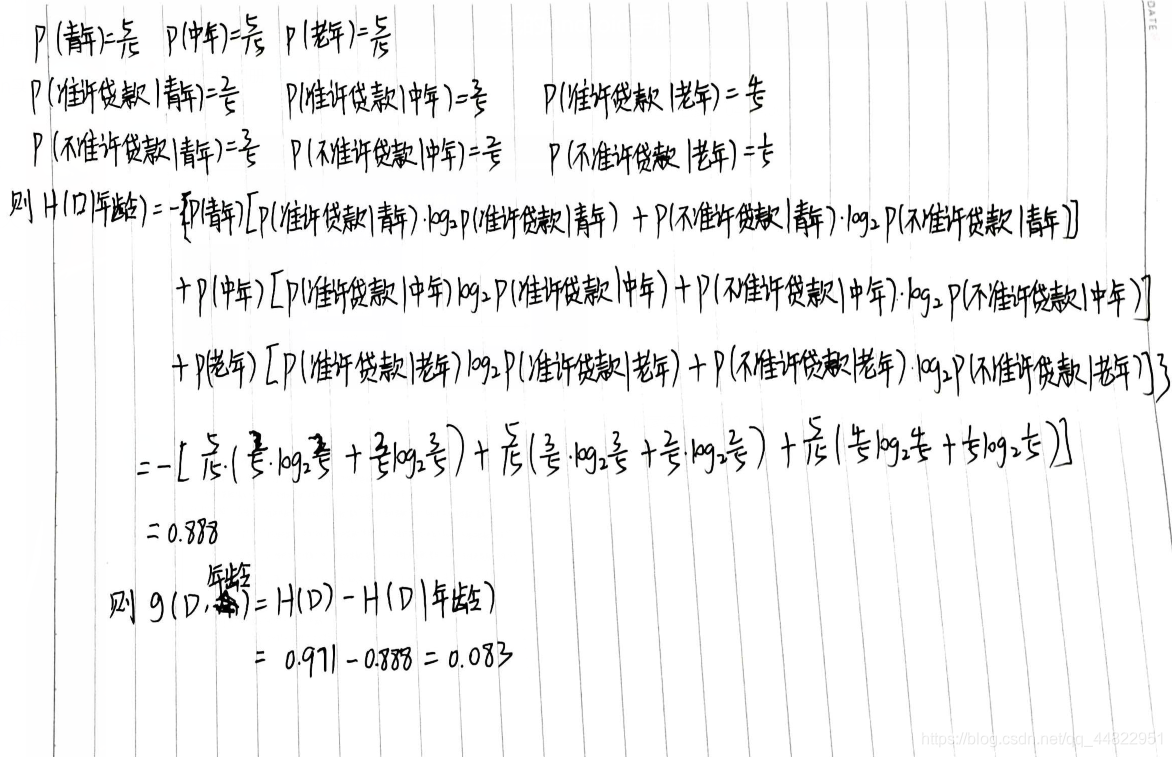 P(青年)=5/15 P(中年)=5/15 P(老年)=5/15
P(准许贷款|青年)=2/5 P(准许贷款|中年)=3/5 P(准许贷款|老年)=4/5
P(不准许贷款|青年)=3/5 P(不准许贷款|中年)=2/5 P(不准许贷款|老年)=1/5
则 H(D|年龄)=-{P(青年)[P(准许贷款|青年)·log₂P(准许贷款|青年)+P(不准许贷款|青年)·log₂P(不准许贷款|青年)]
+P(中年)[P(准许贷款|中年)log₂P(准许贷款|中年)+P(不准许贷款|中年)·log₂P(不准许贷款|中年)]
+P(老年)[P(准许贷款|老年)log₂P(准许贷款|老年)+P(不准许贷款|老年)·log₂P(不准许贷款|老年)]}
=-[5/15·(2/5·log₂2/5+3/5log₂3/5)+5/15(3/5·log₂3/5+2/5·log₂2/5)+5/15(4/5log₂4/5+1/5log₂1/5)]
=0.888
则 g(D,年龄)=H(D)-H(D|年龄)
=0.971-0.888=0.083
DATE
https://blog.csdn.net/qq_44822951